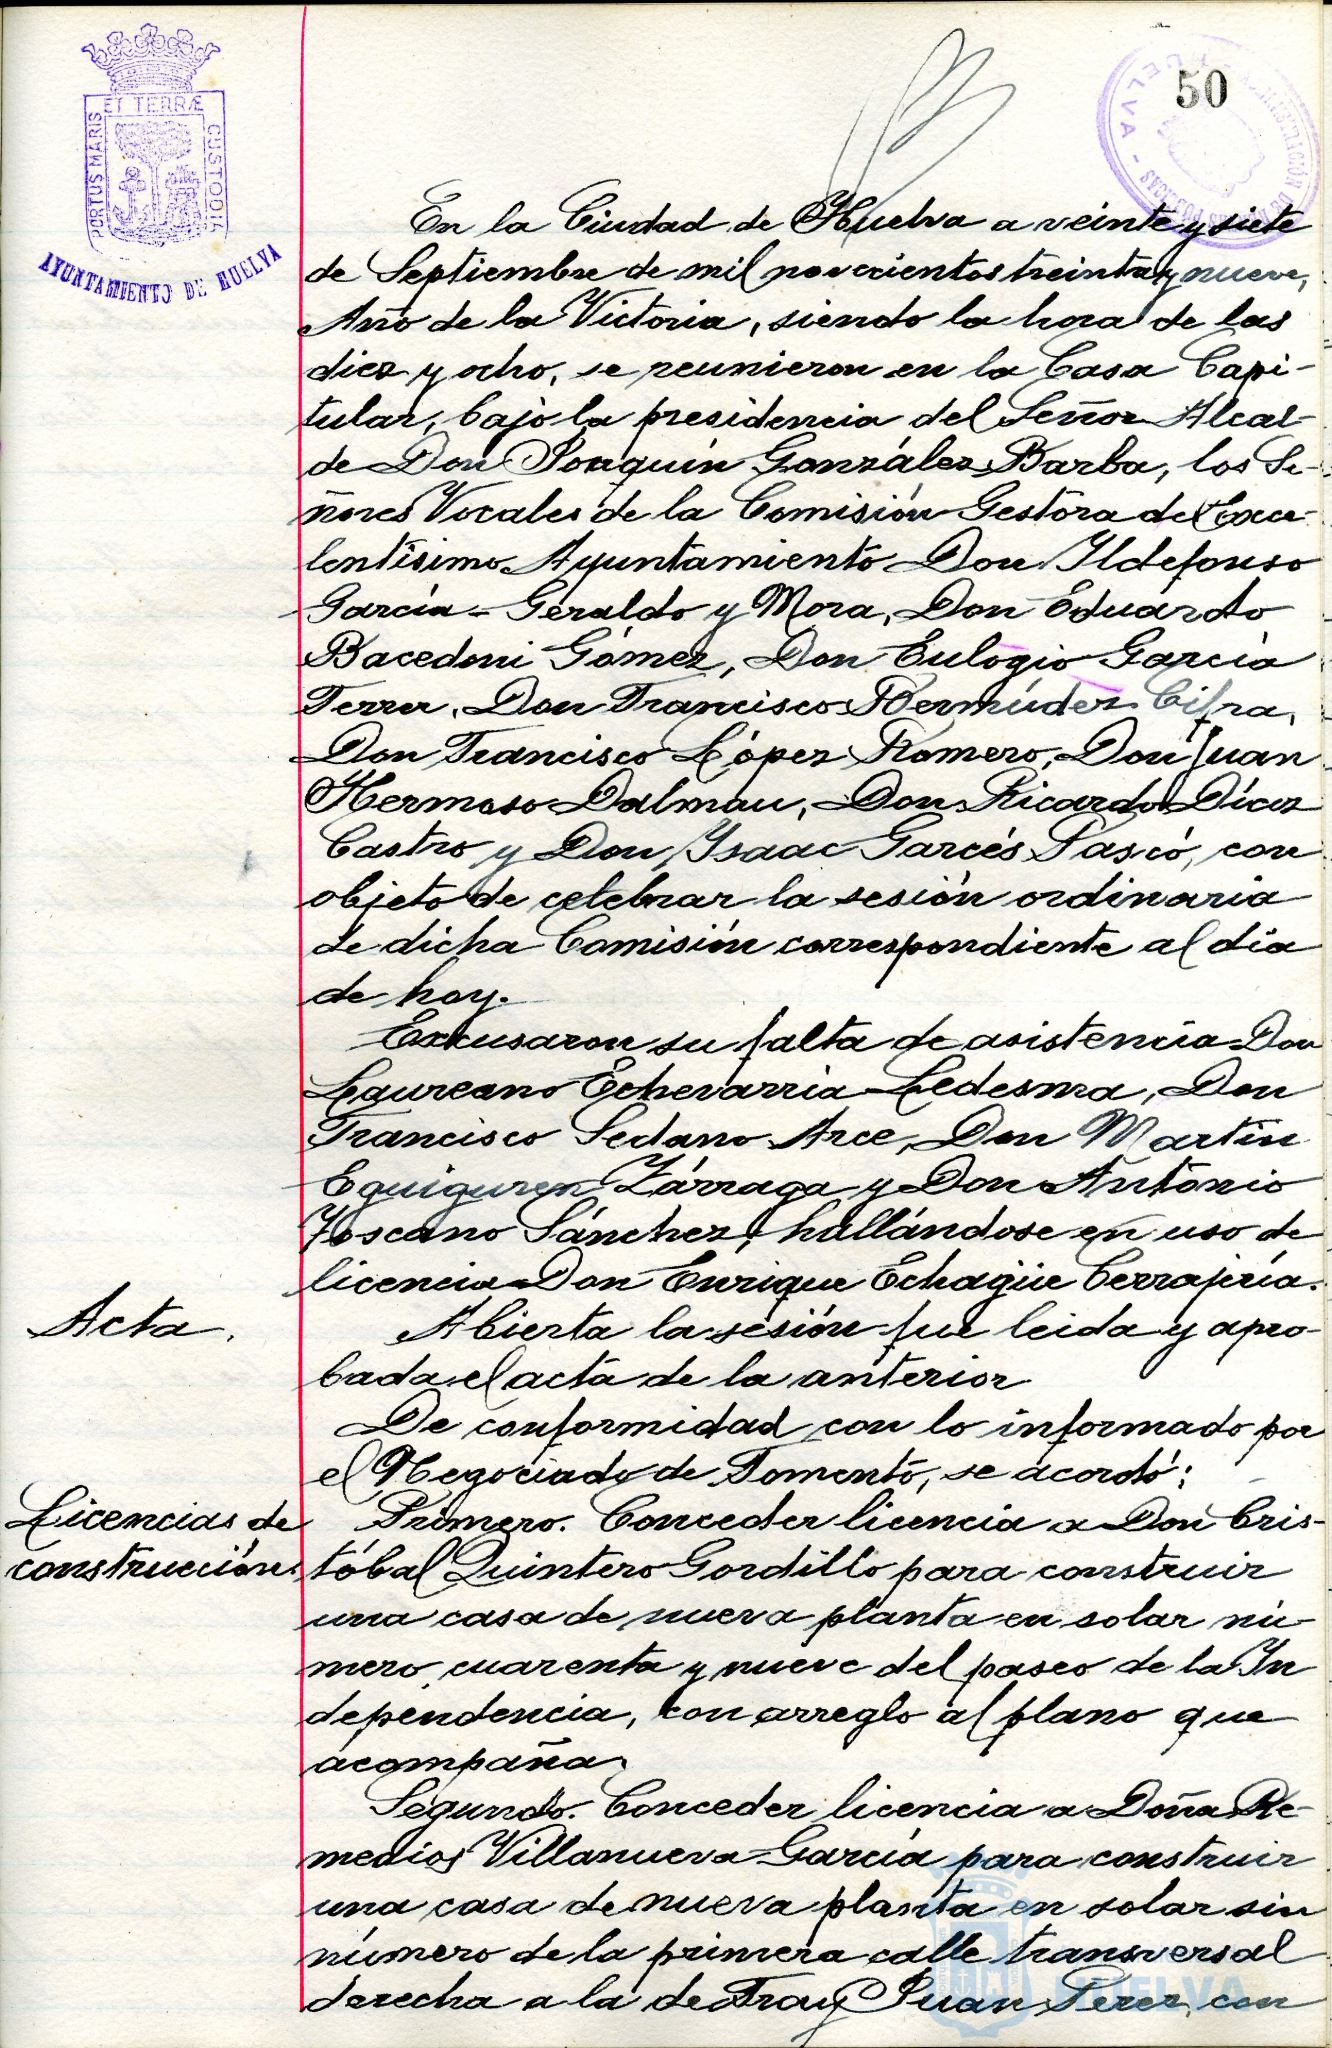 50
PORTUS MARIS ET TERRÆ CUSTODIA
AYUNTAMIENTO DE HUELVA
En la Ciudad de Huelva a veinte y siete
de Septiembre de mil novecientos treinta y nueve,
Año de la Victoria, siendo la hora de las
diez y ocho, se reunieron en la Casa Capi-
tular, bajo la presidencia del Señor Alcal-
de Don Joaquín González Barba, los Se-
ñores Vocales de la Comisión Gestora del Exce-
lentísimo Ayuntamiento Don Ildefonso
García-Geraldo y Mora, Don Eduardo
Bacedoni Gómez, Don Eulogio García
Ferrer, Don Francisco Bermúdez Cifra,
Don Francisco López Romero, Don Juan
Hermoso Dalmau, Don Ricardo Diez
Castro y Don Isaac Garcés Pascó, con
objeto de celebrar la sesión ordinaria
de dicha Comisión correspondiente al día
de hoy.
Excusaron su falta de asistencia Don
Laureano Echevarria Ledesma, Don
Francisco Sedano Arce, Don Martín
Eguiguren Zárraga y Don Antonio
Toscano Sánchez, hallándose en uso de
licencia Don Enrique Echagüe Cerrajería.
Acta.
Abierta la sesión fue leida y apro-
bada el acta de la anterior
De conformidad con lo informado por
el Negociado de Fomento, se acordó:
Licencias de
construcción.
Primero. Conceder licencia a Don Cris-
tóbal Quintero Gordillo para construir
una casa de nueva planta en solar nú-
mero cuarenta y nueve del paseo de la In
dependencia, con arreglo al plano que
acompaña.
Segundo. Conceder licencia a Doña Re-
medios Villanueva García para construir
una casa de nueva planta en solar sin
número de la primera calle transversal
derecha a la de Fray Juan Perez, con
HUELVA